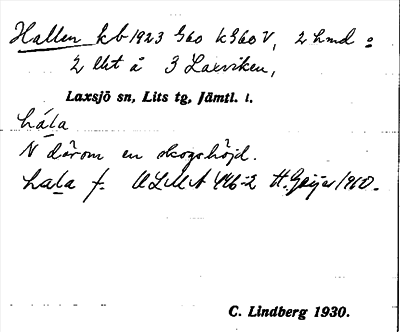 Hallen kb 1923 S60 k 360 V, 2 hmd o
2 lht å 3 Laxviken,
Laxsjö sn, Lits tg, Jämtl. l.
hála
N därom en skogshöjd.
hala f. ULMA 446:2 H. Geijer 1960.
C. Lindberg 1930.